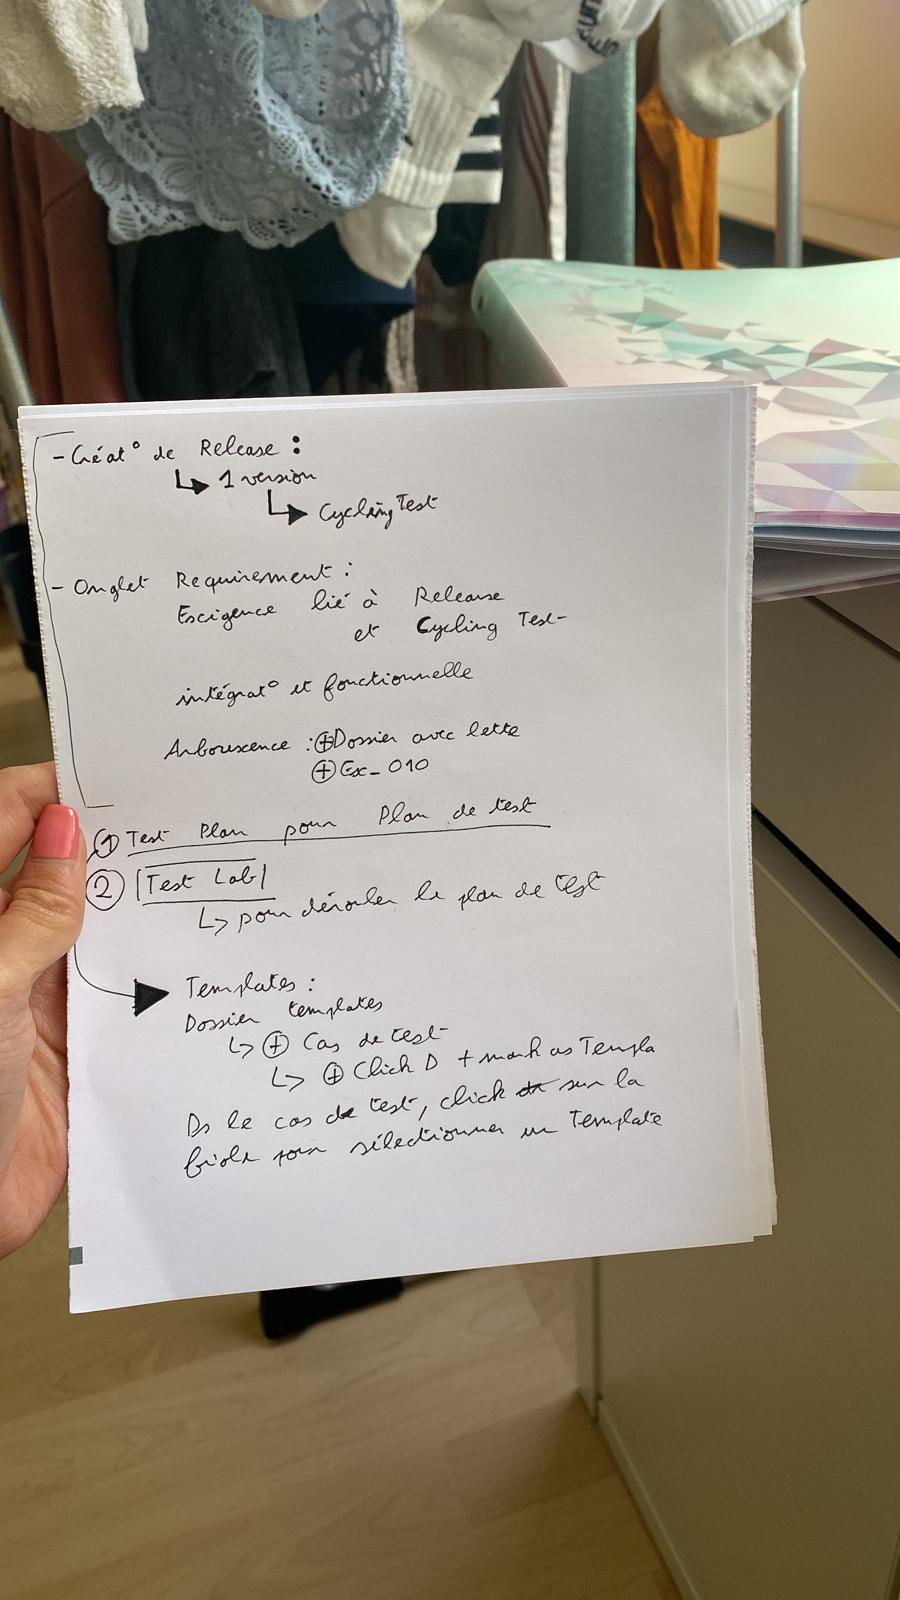 - Créat° de Release :
↳ 1 version
↳ Cycling Test
- Onglet Requirement :
Escigence lié à Release
et Cycling Test
intégrat° et fonctionnelle
Arborescence : ⊕ Dossier avec lette
⊕ Ex_010
① Test Plan pour Plan de test
② |Test Lab|
↳ pour dérouler le plan de test
Templates :
Dossier templates
↳ ⊕ Cas de test
↳ ⊕ Click D + mark as Templa
Ds le cas de test, click sur la
fiole pour sélectionner un Template